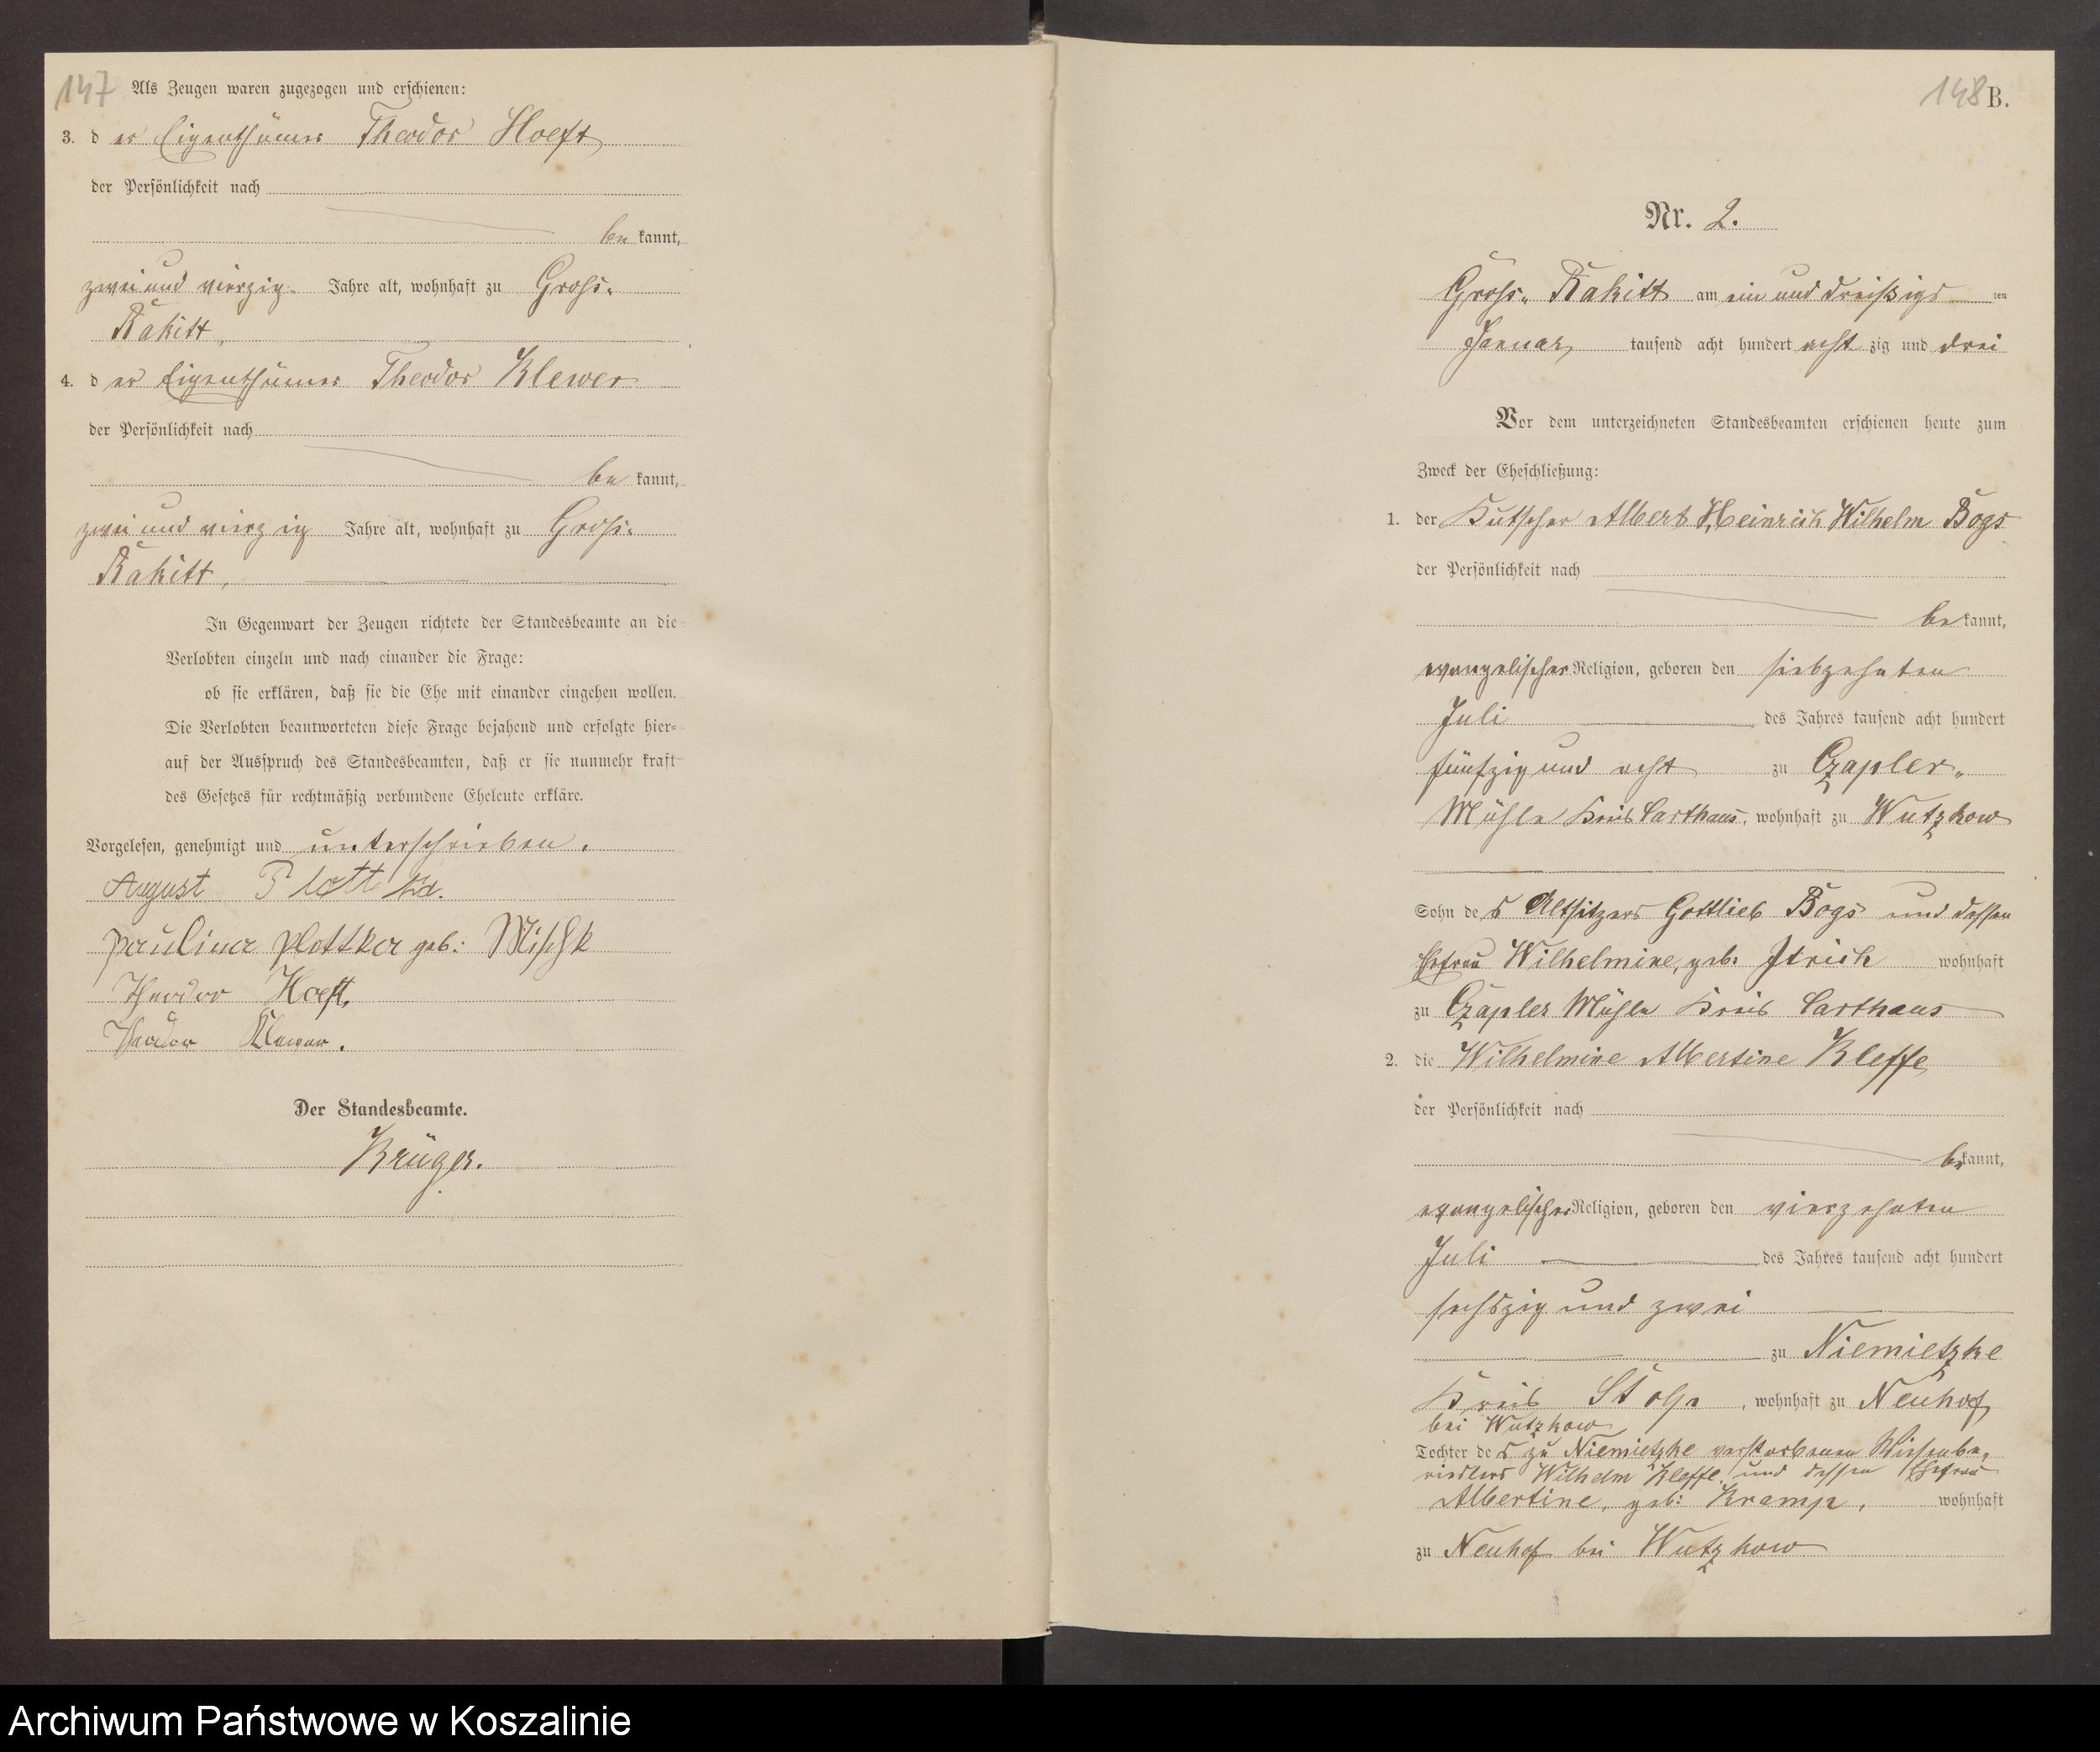 147
Als Zeugen waren zugezogen und erschienen:
3. der Eigenthümer Theodor Hoeft
der Persönlichkeit nach
bekannt,
zwei und vierzig Jahre alt, wohnhaft zu Gross-
Rakitt,
4. der Eigenthümer Theodor Klewer
der Persönlichkeit nach
bekannt,
zwei und vierzig Jahre alt, wohnhaft zu Gross-
Rakitt,
In Gegenwart der Zeugen richtete der Standesbeamte an die
Verlobten einzeln und nach einander die Frage:
ob sie erklären, daß sie die Ehe mit einander eingehen wollen.
Die Verlobten beantworteten diese Frage bejahend und erfolgte hier-
auf der Ausspruch des Standesbeamten, daß er sie nunmehr kraft
des Gesetzes für rechtmäßig verbundene Eheleute erkläre.
Vorgelesen, genehmigt und unterschrieben.
August Plottka.
Pauline Plottka geb: Mischk
Theodor Hoeft,
Theodor Klewer.
Der Standesbeamte.
Krüger.
148 B.
Nr. 2.
Gross-Rakitt am ein und dreißigsten
Januar tausend acht hundert achtzig und drei
Vor dem unterzeichneten Standesbeamten erschienen heute zum
Zweck der Eheschließung:
1. der Kutscher Albert Heinrich Wilhelm Bogs
der Persönlichkeit nach
bekannt,
evangelischer Religion, geboren den siebzehnten
Juli des Jahres tausend acht hundert
fünfzig und acht zu Czapler-
Mühle Kreis Carthaus, wohnhaft zu Wutzkow
Sohn des Altsitzers Gottlieb Bogs und dessen
Ehefrau Wilhelmine, geb. Jtrich wohnhaft
zu Czapler Mühle Kreis Carthaus
2. die Wilhelmine Albertine Kleffe
der Persönlichkeit nach
bekannt,
evangelischer Religion, geboren den vierzehnten
Juli des Jahres tausend acht hundert
sechszig und zwei
zu Niemietzke
Kreis Stolp, wohnhaft zu Neuhof
bei Wutzkow
Tochter des zu Niemietzke verstorbenen
Wilhelm Kleffe, und dessen Ehefrau
Albertine, geb: Kramp, wohnhaft
zu Neuhof bei Wutzkow
Archiwum Państwowe w Koszalinie